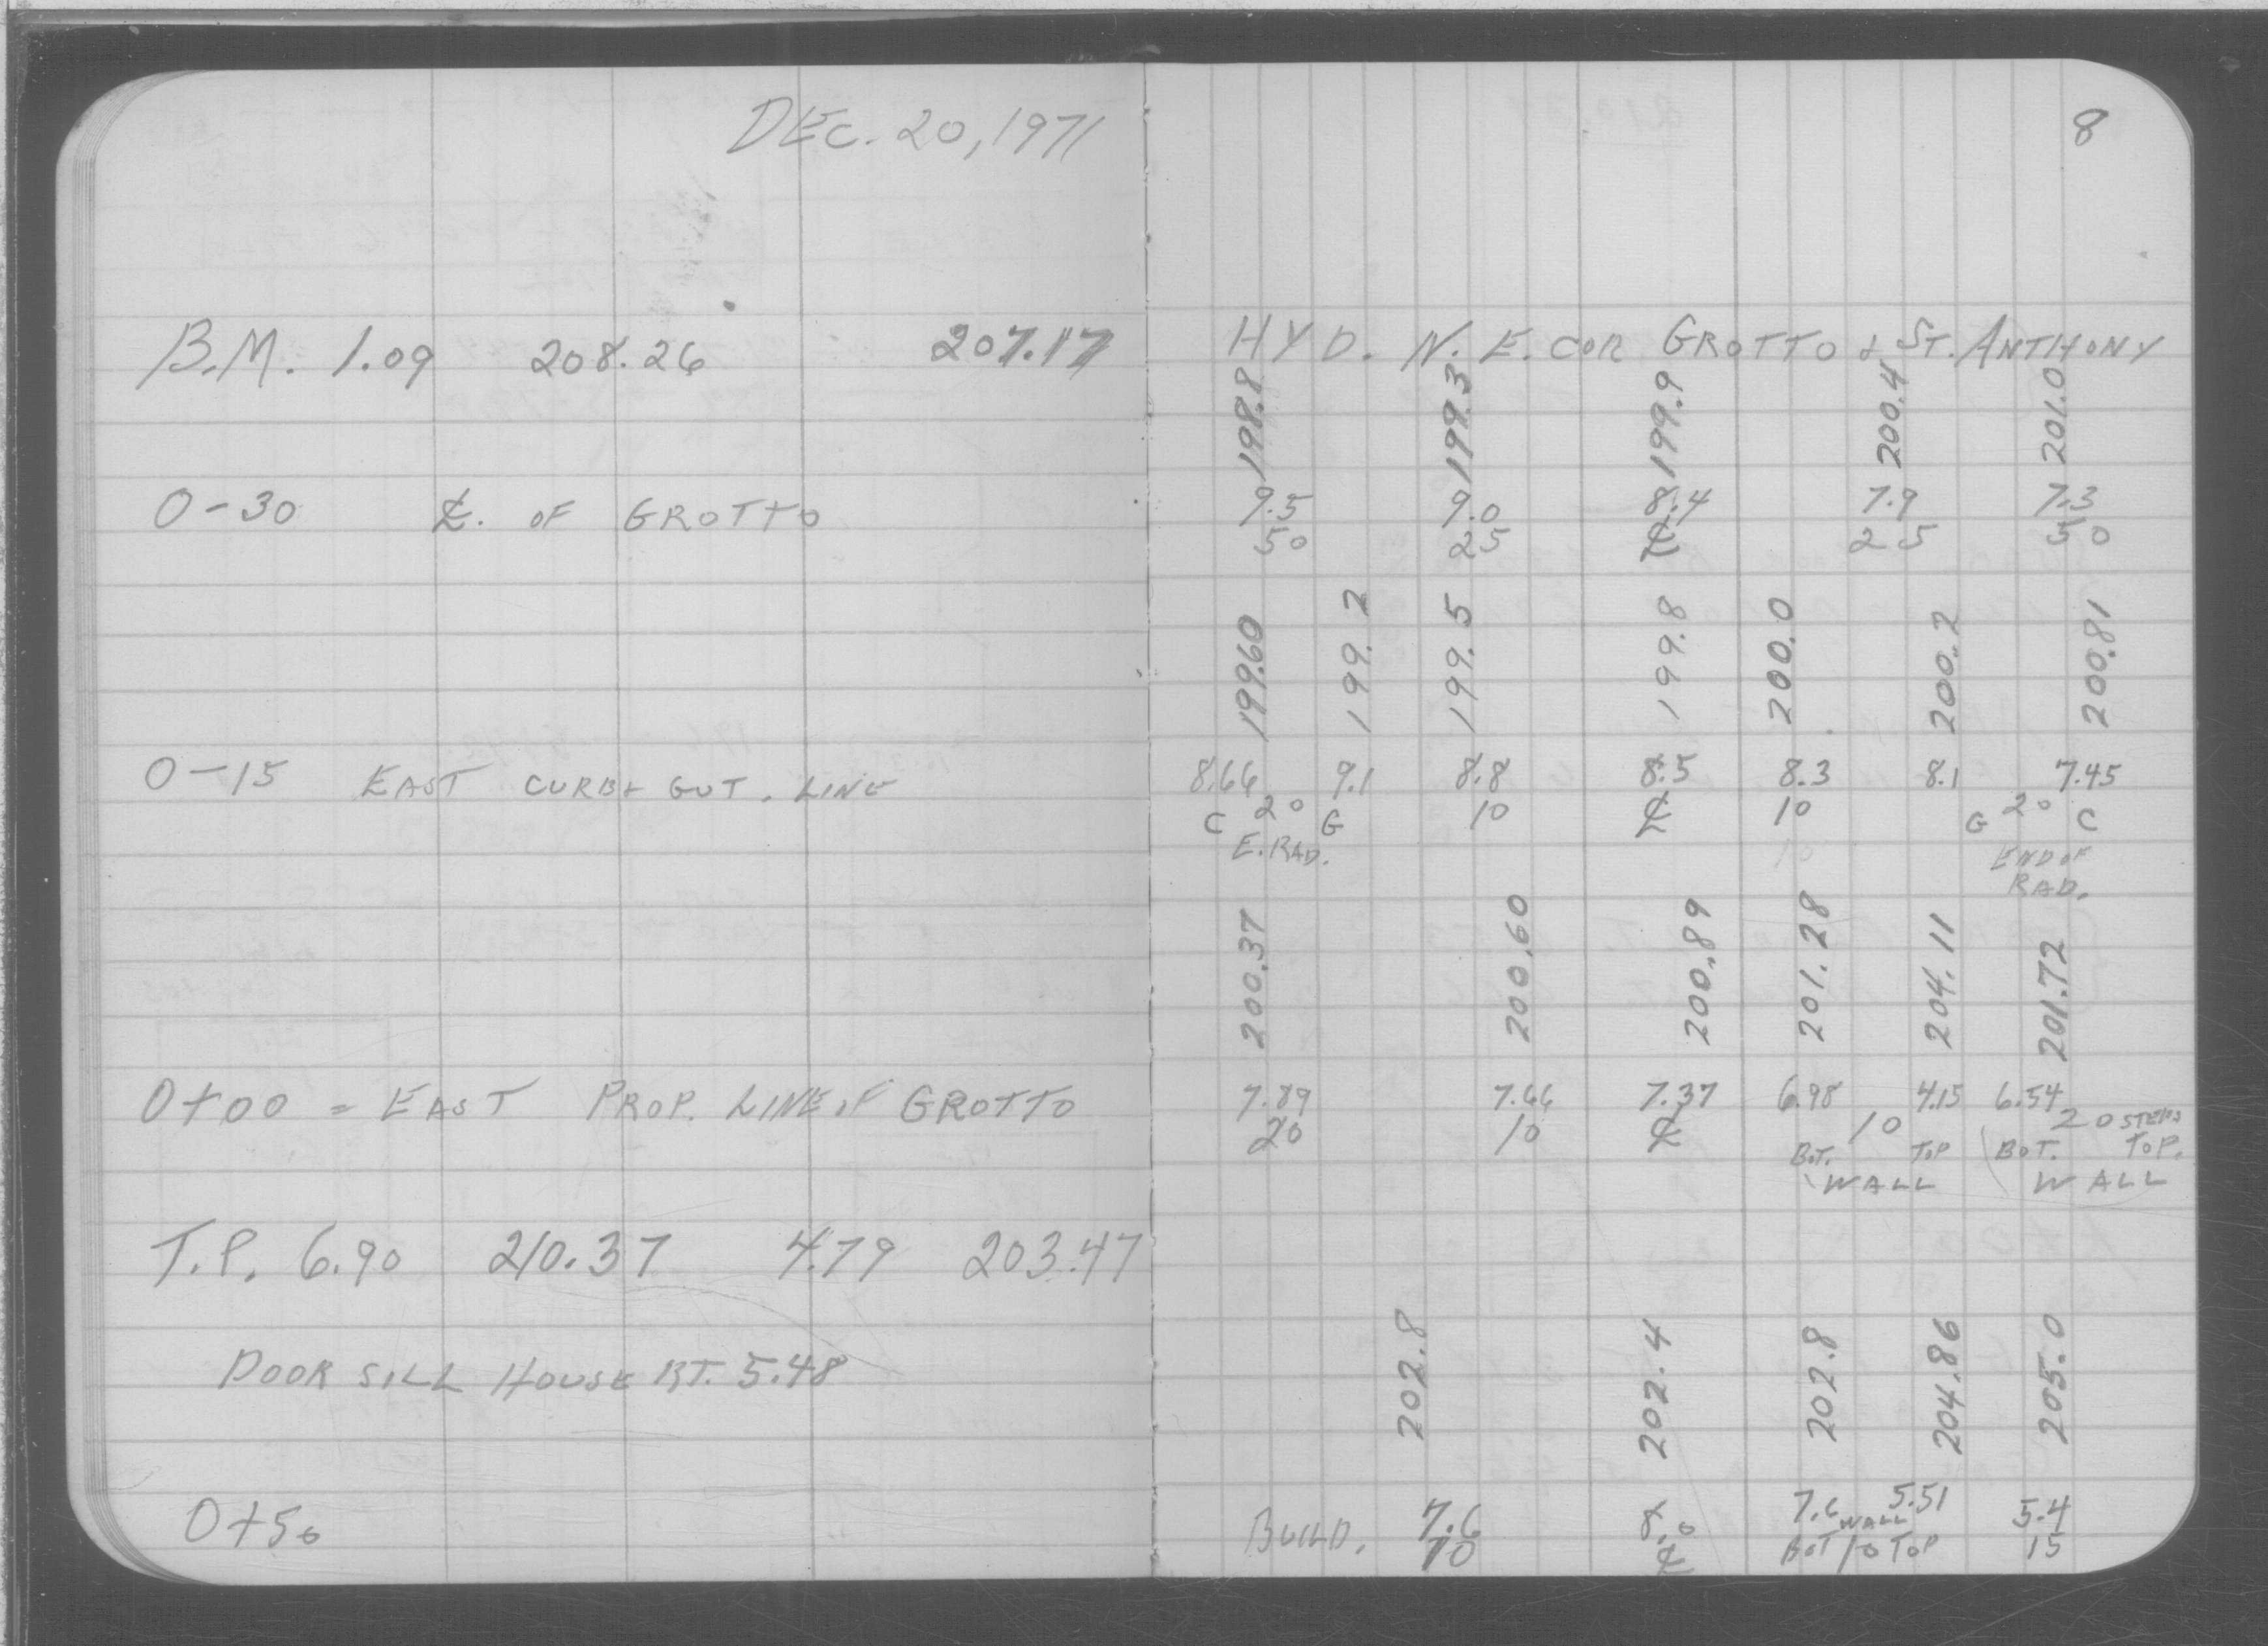 DEC. 20, 1971
8
B.M. 1.09 208.26 207.17 HYD. N. E. COR GROTTO & ST. ANTHONY
198.8 199.3 199.9 200.4 201.0
0-30 ℄. OF GROTTO 9.5 9.0 8.4 7.9 7.3
50 25 ℄ 25 50
199.60 199.2 199.5 199.8 200.0 200.2 200.81
0-15 EAST CURB & GUT. LINE 8.66 9.1 8.8 8.5 8.3 8.1 7.45
C 20 G 10 ℄ 10 G 20 C
E. RAD. END OF
RAD.
200.37 200.60 200.89 201.28 204.11 201.72
0+00 = EAST PROP. LINE OF GROTTO 7.89 7.66 7.37 6.98 4.15 6.54
20 10 ℄ 10 20 STEPS
BOT. TOP BOT. TOP.
WALL WALL
T.P. 6.90 210.37 4.79 203.47
202.8 202.4 202.8 204.86 205.0
DOOR SILL HOUSE RT. 5.48
0+50 BUILD. 7.6 8.0 7.6 WALL 5.51 5.4
10 ℄ BOT 10 TOP 15